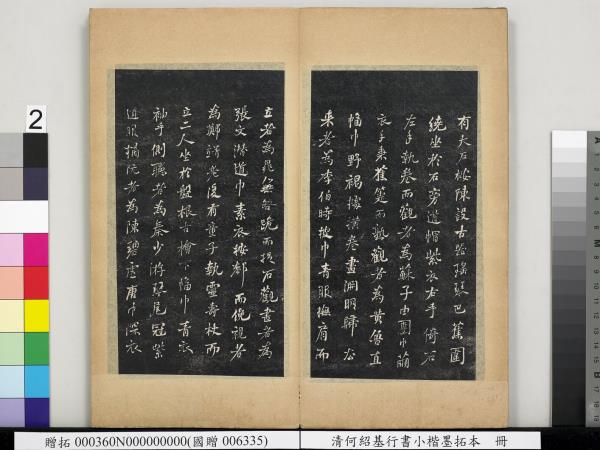 有大石案陳設古器瑤琴芭蕉圍
繞坐於石旁道帽紫衣右手倚石
左手執卷而觀書者為蘇子由團巾繭
衣手秉蕉箑而熟觀者為黃魯直
幅巾野褐據橫卷畫淵明歸去
來者為李伯時披巾青服撫肩而
立者為晁無咎跪而捉石觀畫者為
張文潛道巾素衣按膝而俯視者
為鄭靖老後有童子執靈壽杖而
立二人坐於盤根古檜下幅巾青衣
袖手側聽者為秦少游琴尾冠紫
道服摘阮者為陳碧虛唐巾深衣
2
贈拓 000360N000000000(國贈 006335)
清何紹基行書小楷墨拓本 冊